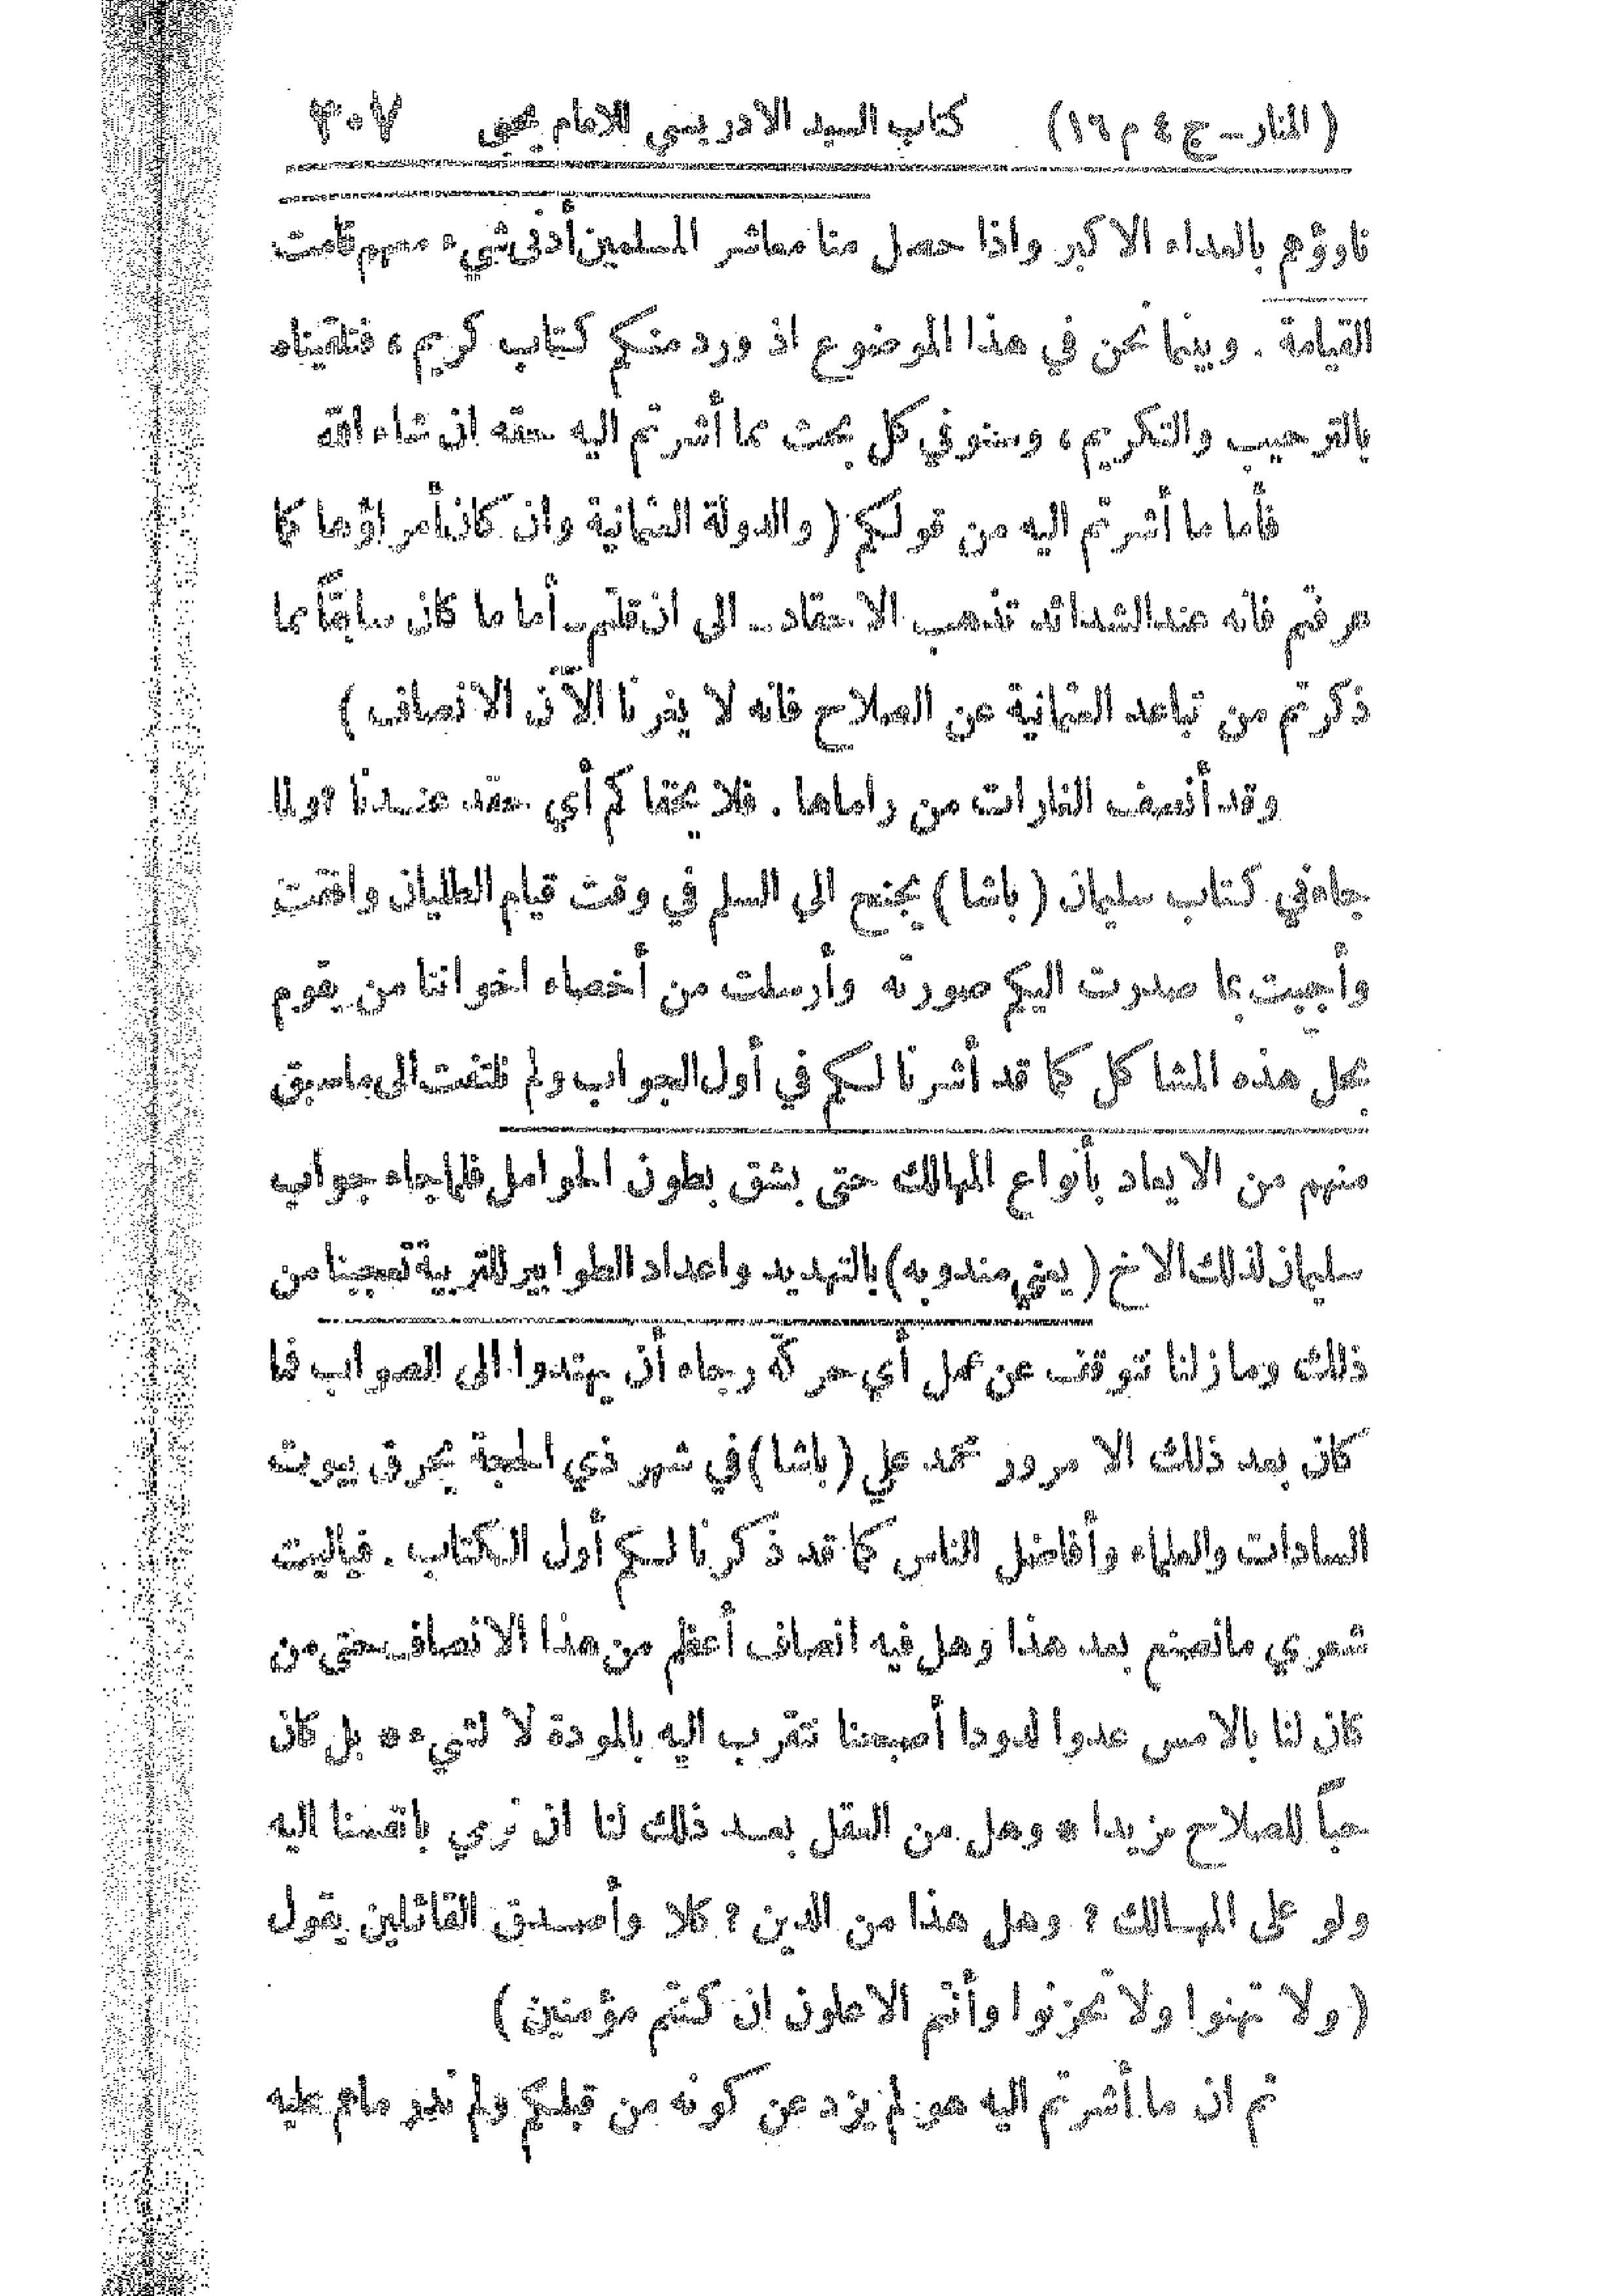 (المنار ـ ج ٤ م ١٦) كتاب السيد الادريسي للامام يحيى ٣٠٧
ناوؤهم بالعداء الاكبر واذا حصل منا معاشر المسلمين أدنى شيء معهم قامت
القيامة . وبينما نحن في هذا الموضوع اذ ورد منكم كتاب كريم ، فتلقيناه
بالترحيب والتكريم ، وسنوفي كل بحث مما أشرتم اليه حقه ان شاء الله
فأما ما أشرتم اليه من قولكم ( والدولة العثمانية وان كان أمراؤها كما
عرفتم فانه عند الشدائد تذهب الاحقاد ـ الى ان قلتم ـ أما ما كان سابقاً مما
ذكرتم من تباعد العثمانية عن الصلاح فانه لا يغرنا الآن الانصاف )
وقد أنصف القارات من راماها . فلا يخفاكم أي حقد عندنا ؟ ولما
جاء في كتاب سليمان ( باشا ) يجنح الى السلم في وقت قيام الطليان وافقت
وأجبت بما صدرت اليكم صورته وأرسلت من أخصاء اخواننا من يقوم
بحل هذه المشاكل كما قد أشرنا لكم في أول الجواب ولم نلتفت الى ما سبق
منهم من الايعاد بأنواع المهالك حتى بشق بطون الحوامل فلما جاء جواب
سليمان لذلك الاخ ( يعني مندوبه ) بالتهديد واعداد الطوابير للتربية تعجبنا من
ذلك وما زلنا نتوقف عن عمل أي حركة رجاء أن يهتدوا الى الصواب فما
كان بعد ذلك الا مرور محمد علي ( باشا ) في شهر ذي الحجة بحرق بيوت
السادات والعلماء وأفاضل الناس كما قد ذكرنا لكم أول الكتاب . فياليت
شعري ما نصنع بعد هذا وهل فيه انصاف أعظم من هذا الانصاف حتى من
كان لنا بالامس عدوا لدودا أصبحنا نتقرب اليه بالمودة لا لشيء ، بل كان
حباً للصلاح مزيدا * وهل من العقل بعد ذلك لنا ان نرمي بانفسنا اليه
ولو على المهالك ؟ وهل هذا من الدين ؟ كلا وأصدق القائلين يقول
( ولا تهنوا ولا تحزنوا وأنتم الاعلون ان كنتم مؤمنين )
ثم ان ما أشرتم اليه هو لم يزد عن كونه من قبلكم ولم ندر ما هم عليه